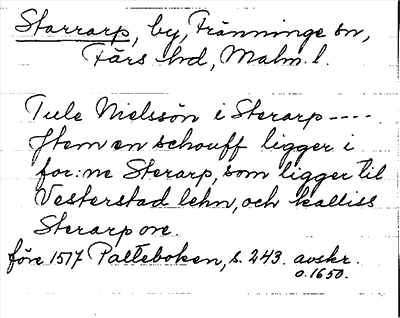 Starrarp, by, Fränninge sn,
Färs hd, Malm. l.
Tule Nielssön i Sterarp ----
Jtem en schouff ligger i
for:ne Sterarp, som ligger til
Vesterstad lehn, och kalliss
Sterarp ore.
före 1517 Palteboken, s. 243. avskr.
o. 1650.